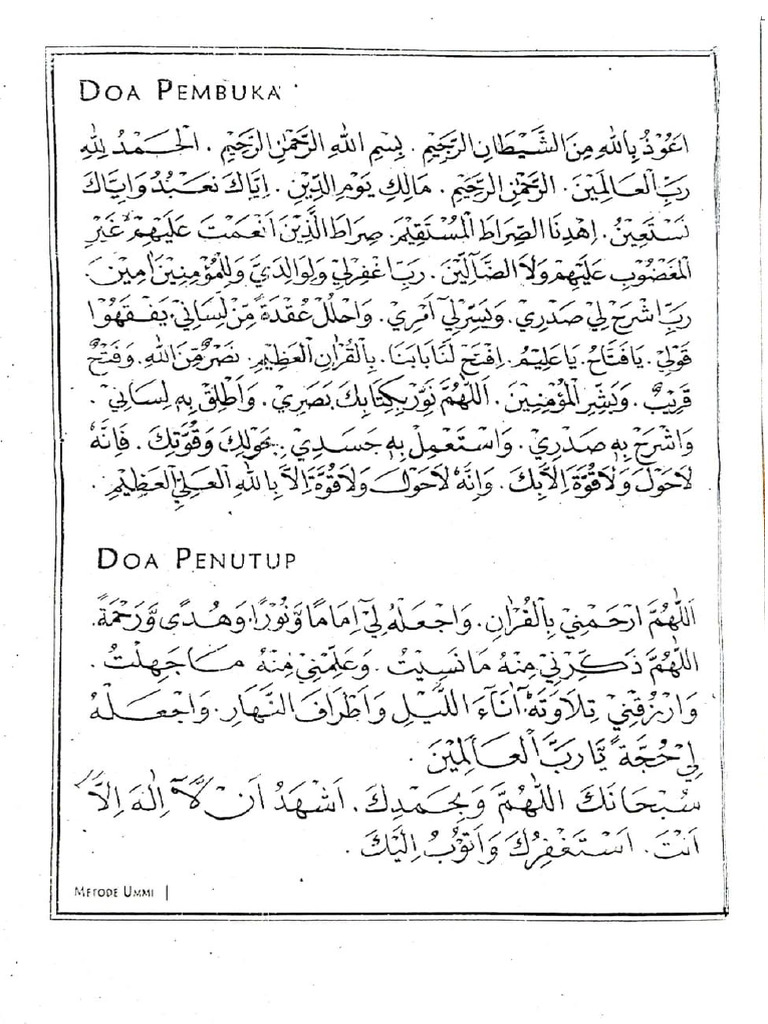 DOA PEMBUKA
اَعُوْذُ بِاللهِ مِنَ الشَّيْطَانِ الرَّجِيْمِ . بِسْمِ اللهِ الرَّحْمٰنِ الرَّحِيْمِ . اَلْحَمْدُ لِلّٰهِ
رَبِّ الْعَالَمِيْنَ . الرَّحْمٰنِ الرَّحِيْمِ . مَالِكِ يَوْمِ الدِّيْنِ . اِيَّاكَ نَعْبُدُ وَاِيَّاكَ
نَسْتَعِيْنُ . اِهْدِنَا الصِّرَاطَ الْمُسْتَقِيْمَ . صِرَاطَ الَّذِيْنَ اَنْعَمْتَ عَلَيْهِمْ غَيْرِ
الْمَغْضُوْبِ عَلَيْهِمْ وَلَا الضَّآلِّيْنَ . رَبِّ اغْفِرْلِيْ وَلِوَالِدَيَّ وَلِلْمُؤْمِنِيْنَ اٰمِيْنَ .
رَبِّ اشْرَحْ لِيْ صَدْرِيْ . وَيَسِّرْلِيْ اَمْرِيْ . وَاحْلُلْ عُقْدَةً مِّنْ لِسَانِيْ يَفْقَهُوْا
قَوْلِيْ . يَافَتَّاحُ . يَاعَلِيْمُ . اِفْتَحْ لَنَا بَابَنَا . بِالْقُرْاٰنِ الْعَظِيْمِ . نَصْرٌ مِّنَ اللهِ . وَفَتْحٌ
قَرِيْبٌ . وَبَشِّرِ الْمُؤْمِنِيْنَ . اَللّٰهُمَّ نَوِّرْ بِكِتَابِكَ بَصَرِيْ . وَاَطْلِقْ بِهِ لِسَانِيْ .
وَاشْرَحْ بِهِ صَدْرِيْ . وَاسْتَعْمِلْ بِهِ جَسَدِيْ . بِحَوْلِكَ وَقُوَّتِكَ . فَاِنَّهُ
لَاحَوْلَ وَلَاقُوَّةَ اِلَّابِكَ . وَاِنَّهُ لَاحَوْلَ وَلَاقُوَّةَ اِلَّا بِاللهِ الْعَلِيِّ الْعَظِيْمِ .
DOA PENUTUP
اَللّٰهُمَّ ارْحَمْنِيْ بِالْقُرْاٰنِ . وَاجْعَلْهُ لِيْ اِمَامًا وَّنُوْرًا وَّهُدًى وَّرَحْمَةً .
اَللّٰهُمَّ ذَكِّرْنِيْ مِنْهُ مَا نَسِيْتُ . وَعَلِّمْنِيْ مِنْهُ مَاجَهِلْتُ .
وَارْزُقْنِيْ تِلَاوَتَهُ اٰنَآءَ اللَّيْلِ وَاَطْرَافَ النَّهَارِ . وَاجْعَلْهُ
لِيْ حُجَّةً يَّارَبَّ الْعَالَمِيْنَ .
سُبْحَانَكَ اللّٰهُمَّ وَبِحَمْدِكَ . اَشْهَدُ اَنْ لَّآ اِلٰهَ اِلَّا
اَنْتَ . اَسْتَغْفِرُكَ وَاَتُوْبُ اِلَيْكَ .
METODE UMMI |